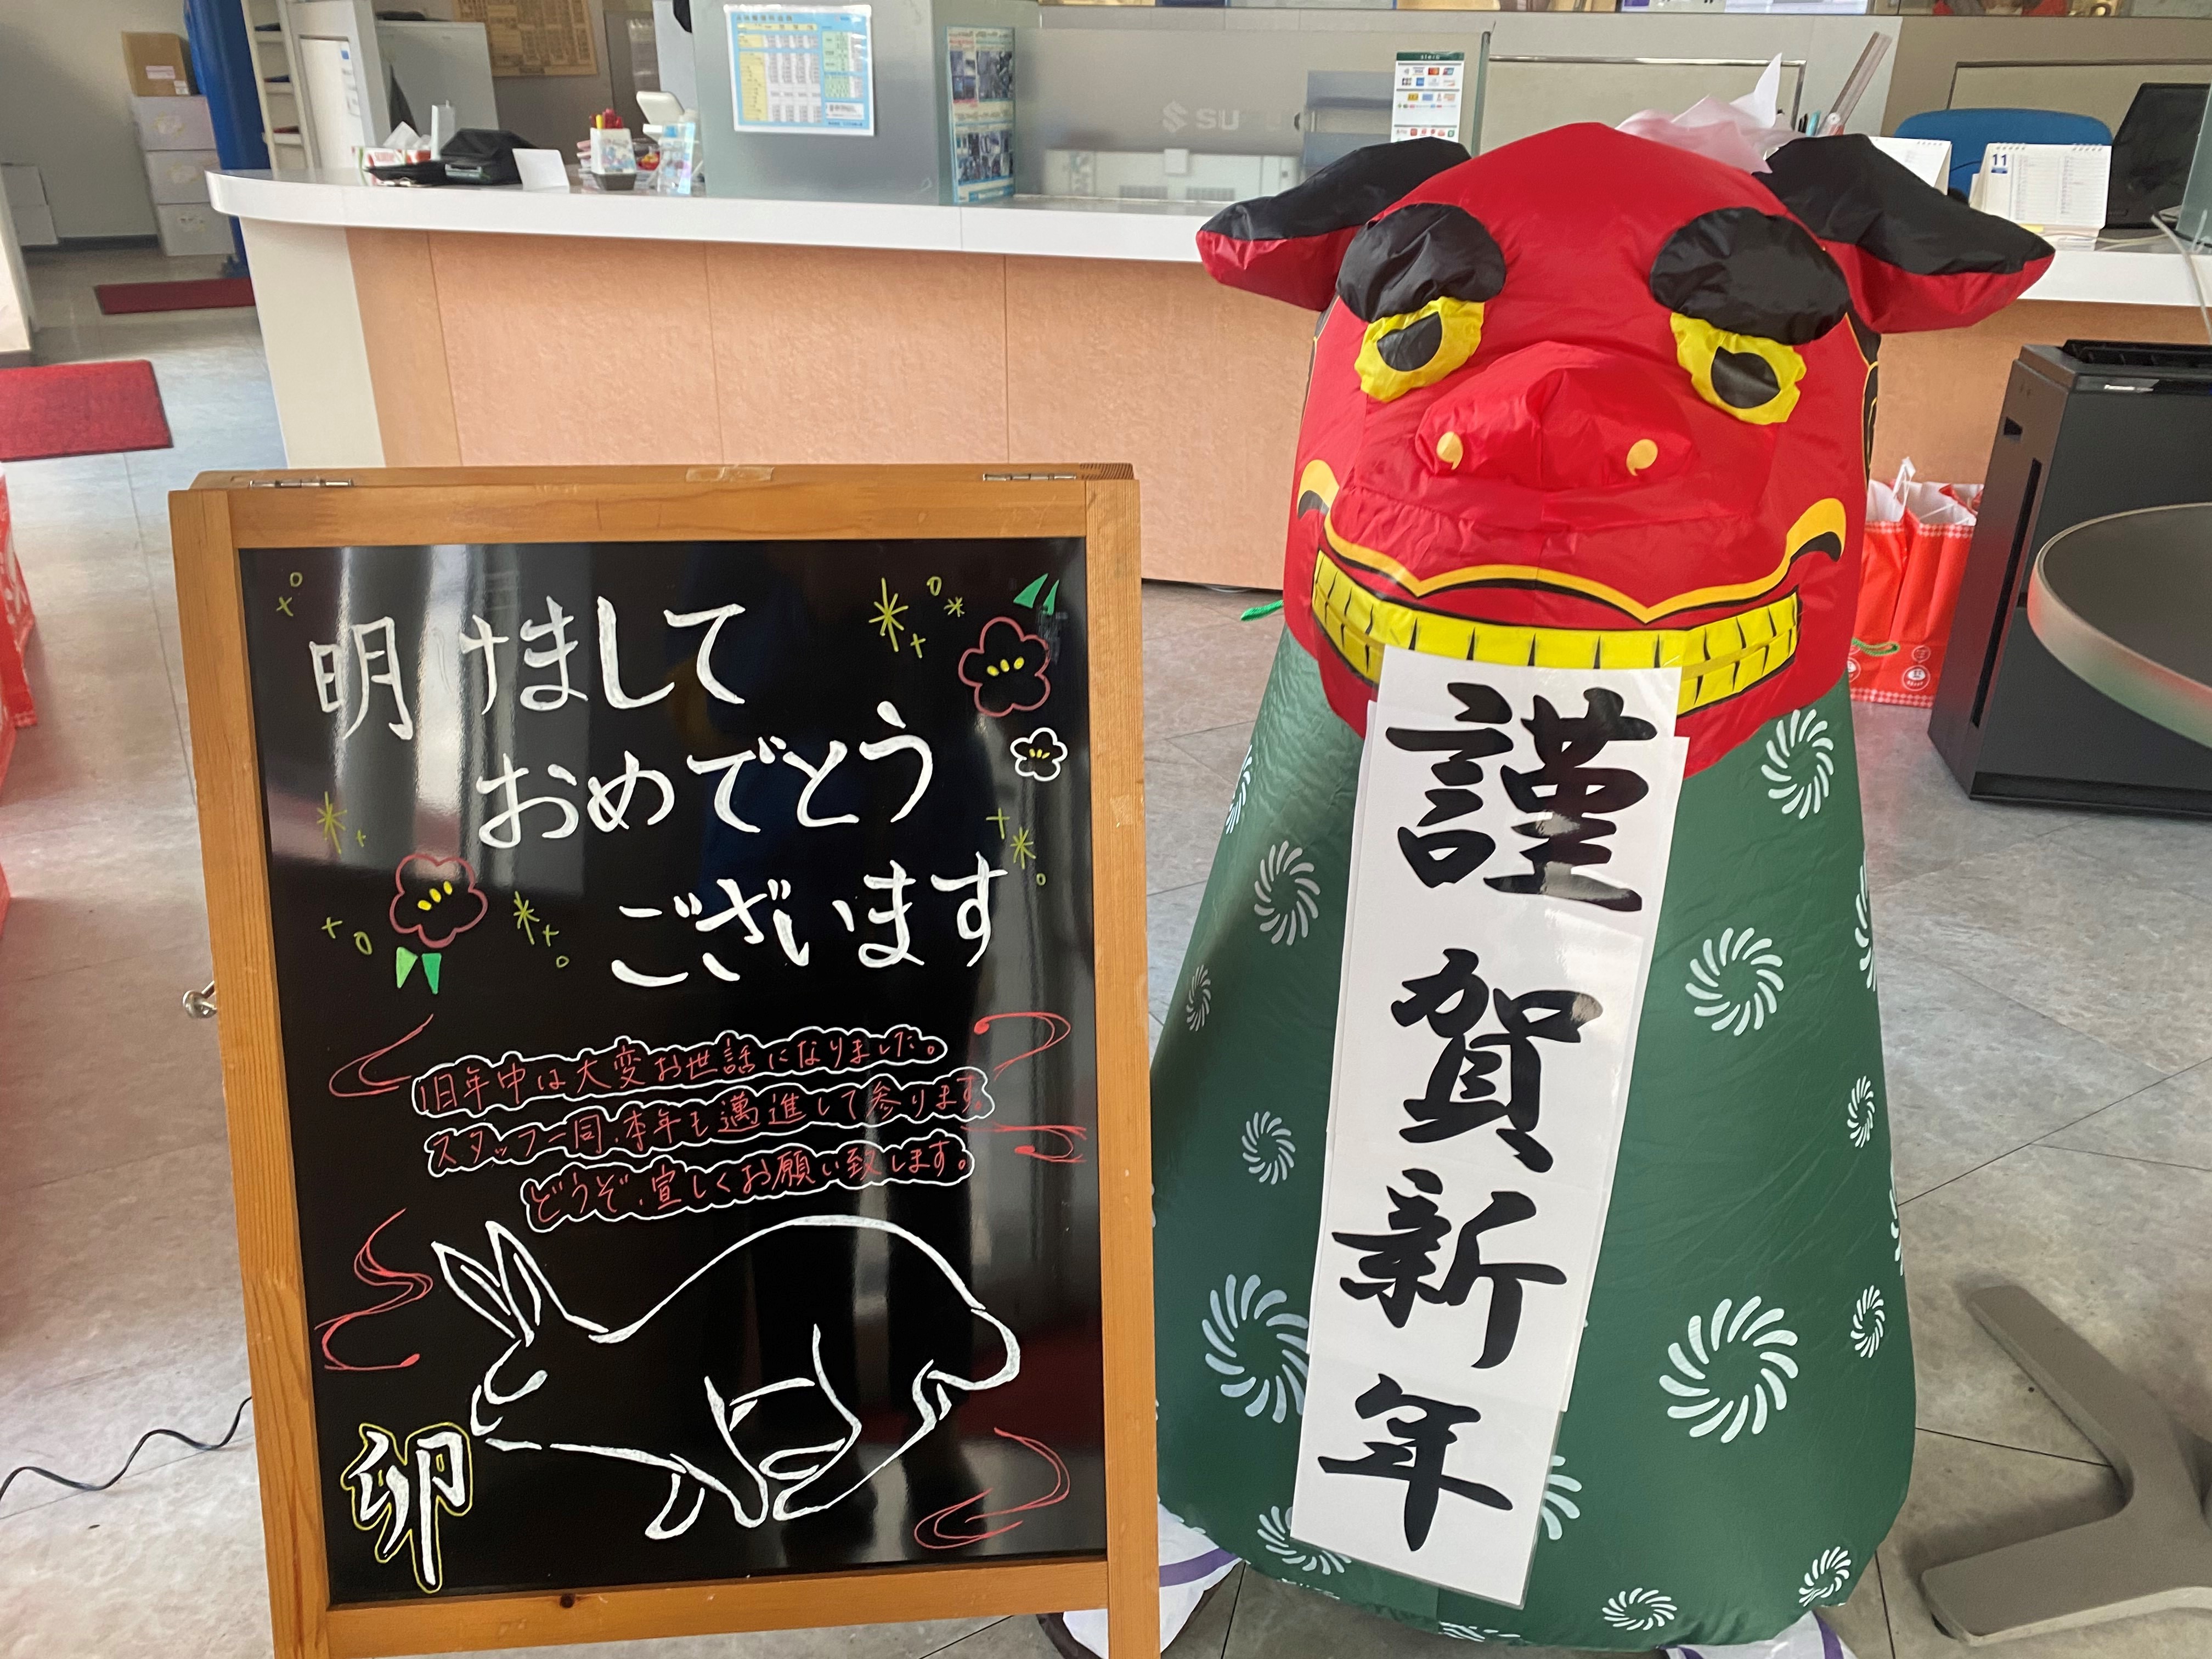 明けまして
おめでとう
ございます
旧年中は大変お世話になりました。
スタッフ一同、本年も邁進して参ります。
どうぞ、宜しくお願い致します。
卯
謹賀新年
SU
11